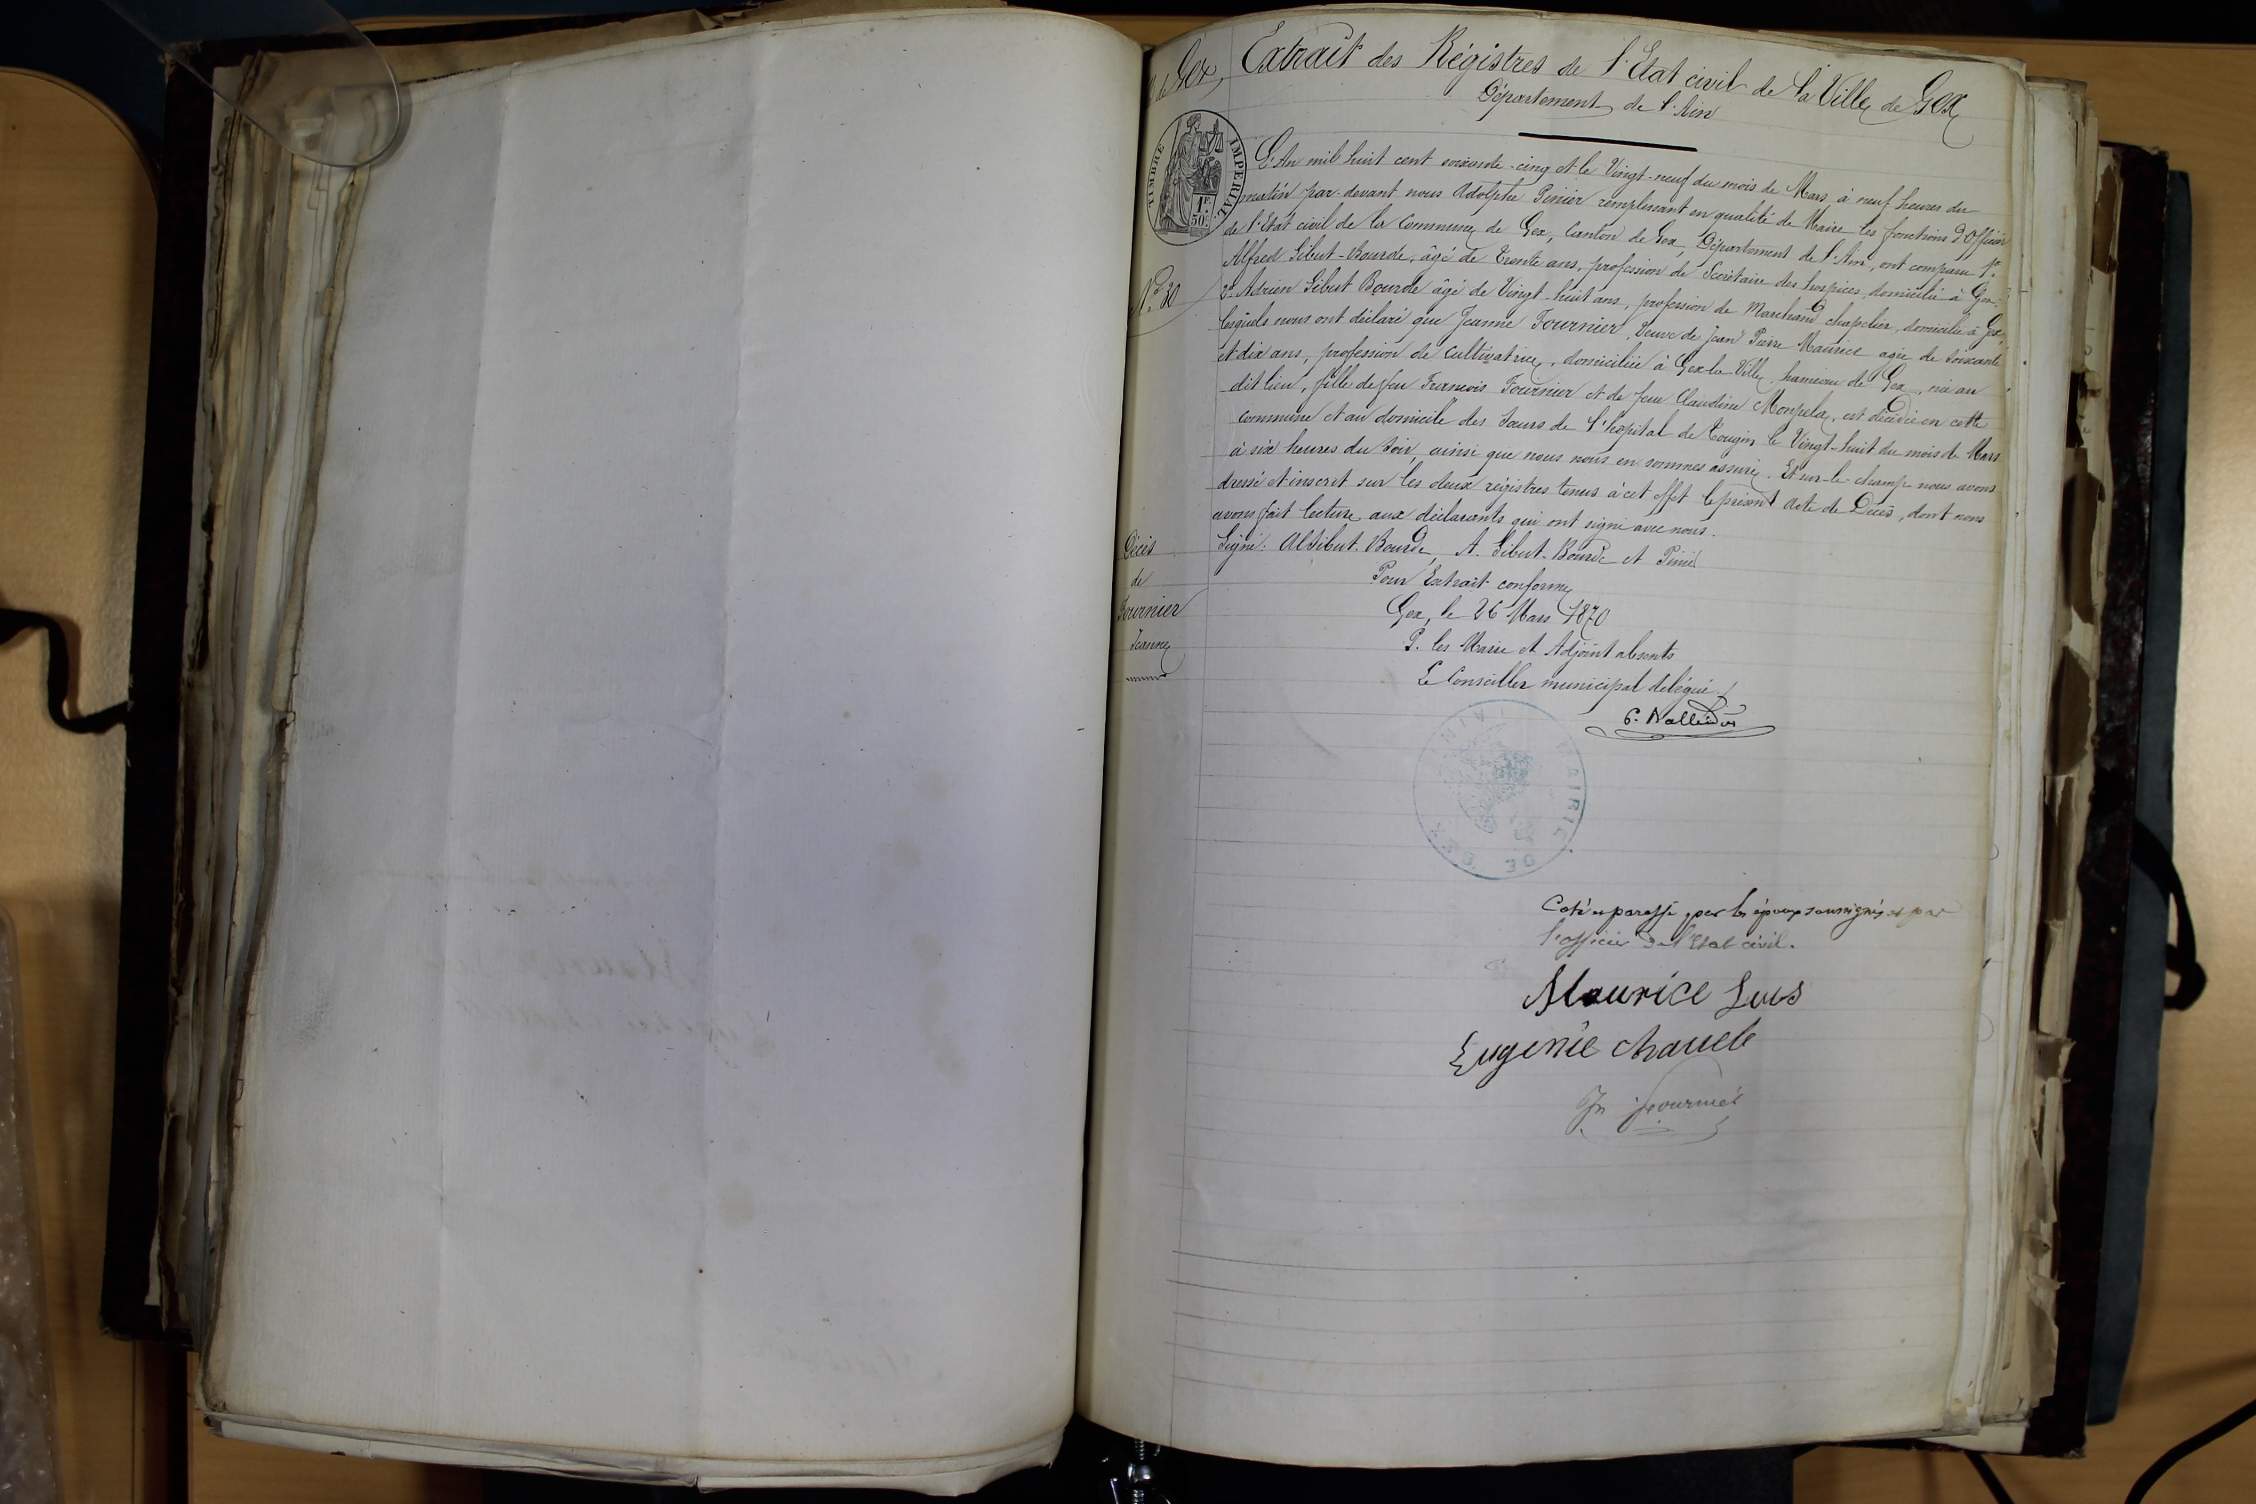 de Gex
Extrait des Régistres de l'Etat civil de la Ville de Gex
Département de l'Ain
TIMBRE IMPERIAL
1F
50c
L'An mil huit cent soixante-cinq et le Vingt-neuf du mois de Mars à neuf heures du
matin par-devant nous Adolphe Pinier remplissant en qualité de Maire les fonctions d'Officier
de l'Etat civil de la Commune de Gex, Canton de Gex, Département de l'Ain, ont comparu 1°
Alfred Gibut-Bourde, âgé de Trente ans, profession de Secrétaire des hospices, domicilié à Gex
N° 30
2° Adrien Gibut Bourde âgé de Vingt-huit ans, profession de Marchand chapelier, domicilié à Gex,
lesquels nous ont déclaré que Jeanne Fournier, Veuve de Jean Pierre Maurice agée de soixante
et dix ans, profession de cultivatrice, domiciliée à Gex-la-Ville, hameau de Gex, née au
dit lieu, fille de feu François Fournier et de feue Claudine Monpela, est décédée en cette
commune et au domicile des Sœurs de l'hopital de Tougin le Vingt-huit du mois de Mars
à six heures du soir, ainsi que nous nous en sommes assuré. Et sur-le-champ nous avons
dressé et inscrit sur les deux régistres tenus à cet effet le présent Acte de Décès, dont nous
avons fait lecture aux déclarants qui ont signé avec nous.
Signé: Al Gibut-Bourde A. Gibut-Bourde et Pinier
Décès
de
Fournier
Jeanne
Pour Extrait conforme
Gex, le 26 Mars 1870
P. les Maire et Adjoint absents
Le Conseiller municipal délégué
MAIRIE DE GEX
Coté et paraffé par les époux soussignés et par
l'officier de l'Etat civil.
Maurice Luis
Eugenie Chauele